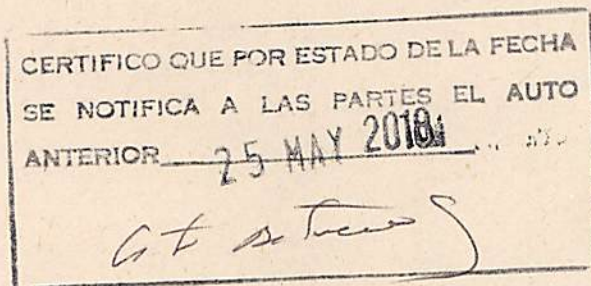 CERTIFICO QUE POR ESTADO DE LA FECHA
SE NOTIFICA A LAS PARTES EL AUTO
ANTERIOR 25 MAY 2018